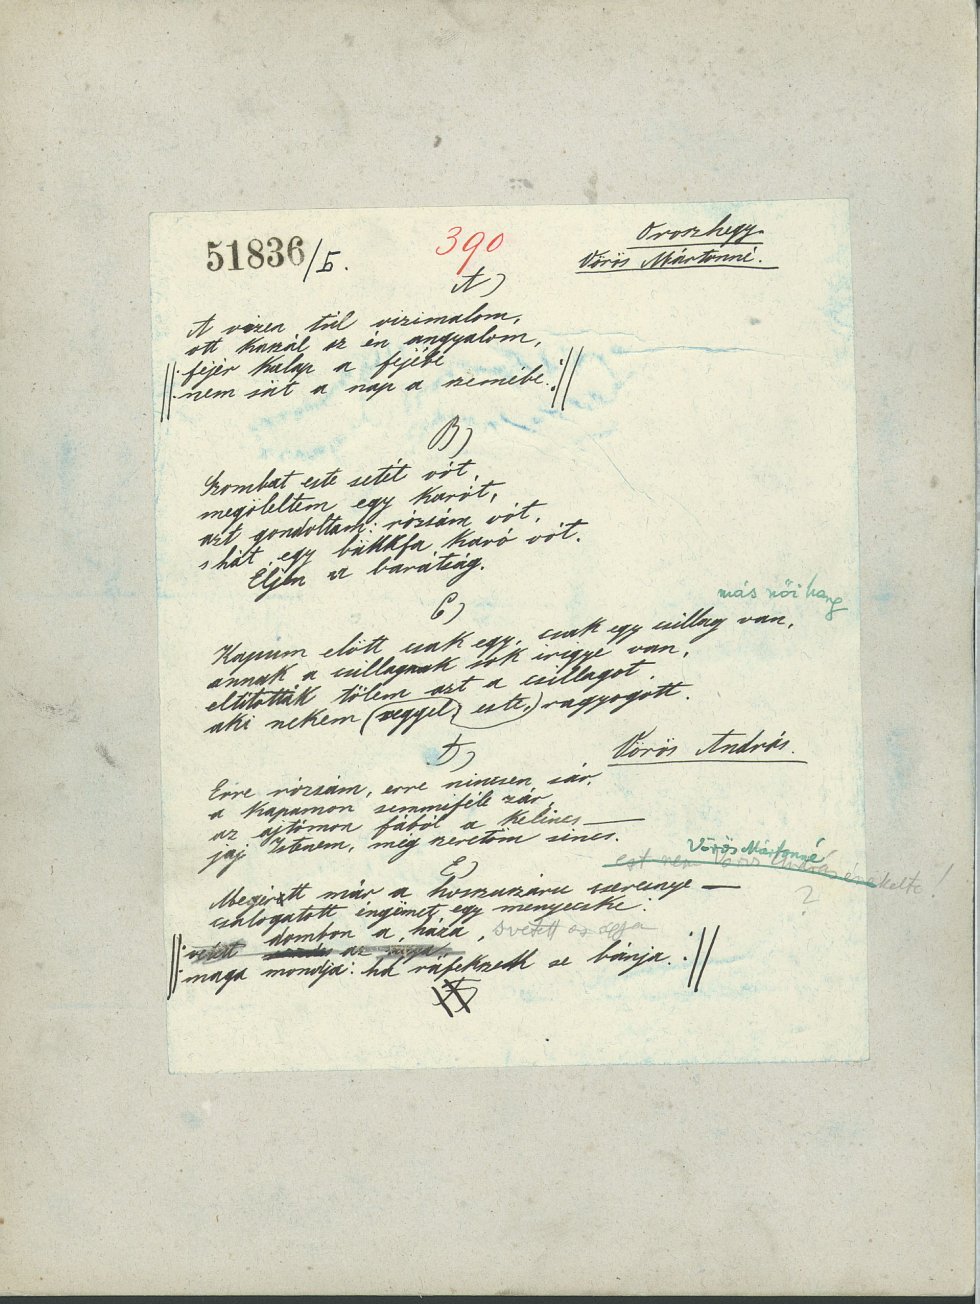 51836/5.
390
Oroszhegy.
Vörös Mártonné.
A)
A vizen túl vizimalom,
ott kaszál az én angyalom,
||: fejér kalap a fejébe
nem süt a nap a szemébe. :||
B)
Szombat este setét vót,
megöleltem egy karót,
azt gondoltam: rózsám vót,
s hát egy bükkfa karó vót.
Éljen a barátság.
más női hang
C)
Kapum előtt csak egy, csak egy csillag van,
annak a csillagnak sok irigye van,
eltitották tőlem azt a csillagot
aki nekem (reggel, este,) ragyogott.
Vörös András.
D)
Erre rózsám, erre nincsen sár,
a kapumon semmiféle zár,
az ajtómon fából a kelincs —
jaj Istenem, még szeretőm sincs.
Vörös Mártonné
ezt nem Vörös András énekelte!
?
E)
Megérett már a hosszuszáru cserenye —
csalogatott ingömet egy menyecske.
dombon a háza, s vetett az ágya
||: vetett az ágya
maga mondja: ha ráfekszek se bánja :||